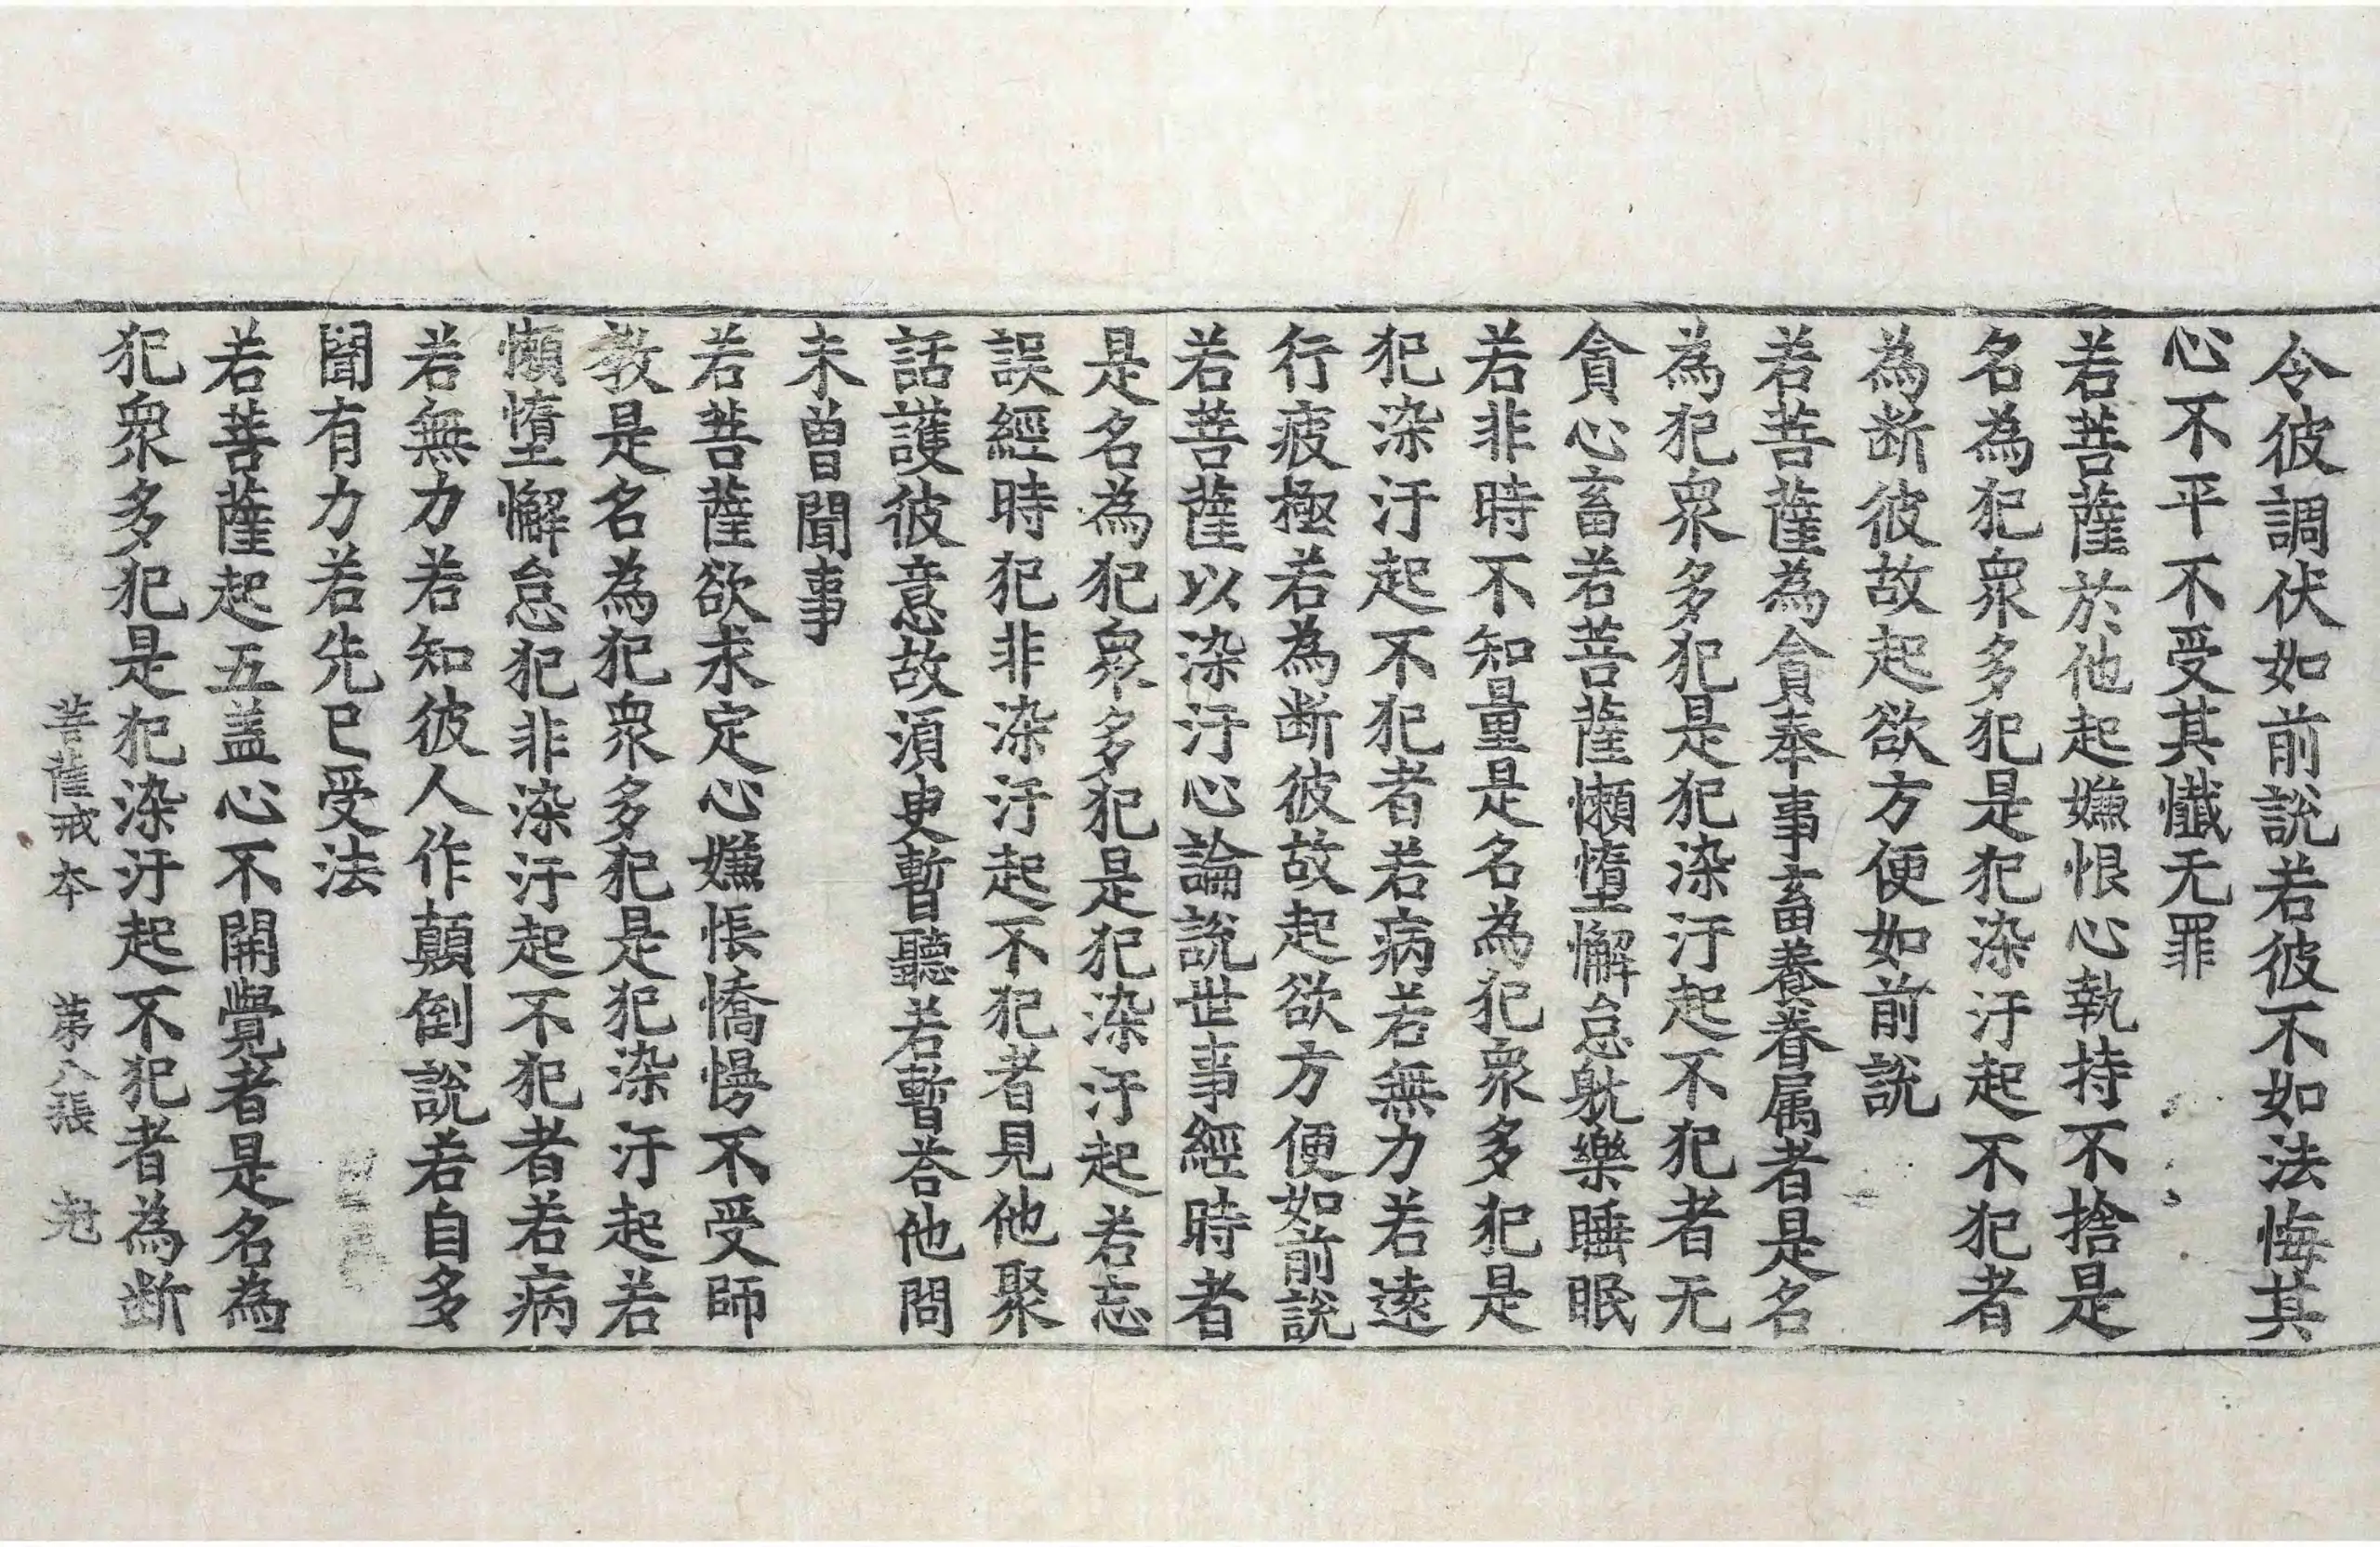 令彼調伏如前說若彼不如法悔其
心不平不受其懺无罪
若菩薩於他起嫌恨心執持不捨是
名為犯衆多犯是犯染汙起不犯者
為断彼故起欲方便如前說
若菩薩為貪奉事畜養眷属者是名
為犯衆多犯是犯染汙起不犯者无
貪心畜若菩薩懶惰懈怠躭樂睡眠
若非時不知量是名為犯衆多犯是
犯染汙起不犯者若病若無力若遠
行疲極若為断彼故起欲方便如前說
若菩薩以染汙心論說世事經時者
是名為犯衆多犯是犯染汙起若忘
誤經時犯非染汙起不犯者見他聚
話護彼意故湏臾暫聽若暫荅他問
未曾聞事
若菩薩欲求定心嫌悵憍慢不受師
教是名為犯衆多犯是犯染汙起若
懶惰懈怠犯非染汙起不犯者若病
若無力若知彼人作顛倒說若自多
聞有力若先已受法
若菩薩起五盖心不開覺者是名為
犯衆多犯是犯染汙起不犯者為断
菩薩戒本 第八張